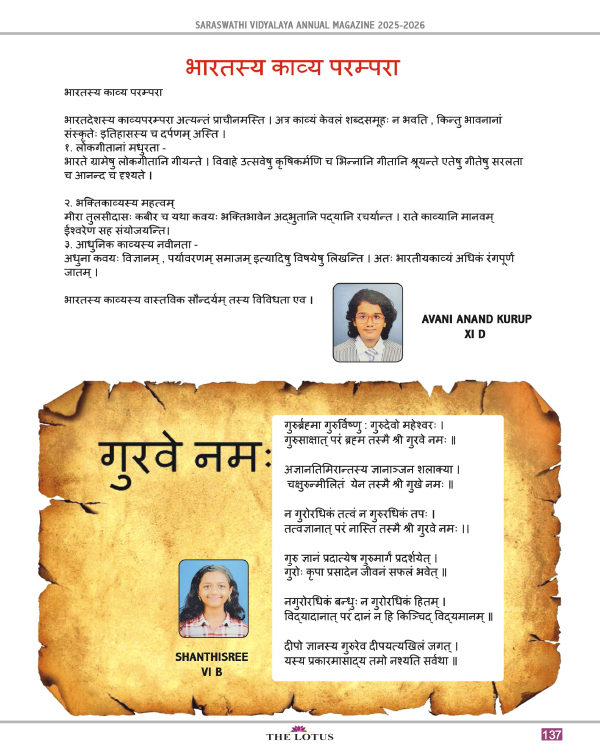 SARASWATHI VIDYALAYA ANNUAL MAGAZINE 2025-2026
भारतस्य काव्य परम्परा
भारतस्य काव्य परम्परा
भारतदेशस्य काव्यपरम्परा अत्यन्तं प्राचीनमस्ति । अत्र काव्यं केवलं शब्दसमूहः न भवति , किन्तु भावनानां
संस्कृतेः इतिहासस्य च दर्पणम् अस्ति ।
१. लोकगीतानां मधुरता -
भारते ग्रामेषु लोकगीतानि गीयन्ते । विवाहे उत्सवेषु कृषिकर्मणि च भिन्नानि गीतानि श्रूयन्ते एतेषु गीतेषु सरलता
च आनन्द च दृश्यते ।
२. भक्तिकाव्यस्य महत्वम्
मीरा तुलसीदासः कबीर च यथा कवयः भक्तिभावेन अद्भुतानि पद्यानि रचर्यान्त । राते काव्यानि मानवम्
ईश्वरेण सह संयोजयन्ति।
३. आधुनिक काव्यस्य नवीनता -
अधुना कवयः विज्ञानम् , पर्यावरणम् समाजम् इत्यादिषु विषयेषु लिखन्ति । अतः भारतीयकाव्यं अधिकं रंगपूर्णं
जातम् ।
भारतस्य काव्यस्य वास्तविक सौन्दर्यम् तस्य विविधता एव ।
AVANI ANAND KURUP
XI D
गुरवे नमः
गुरुर्ब्रह्मा गुरुर्विष्णु : गुरुदेवो महेश्वरः ।
गुरुसाक्षात् परं ब्रह्म तस्मै श्री गुरवे नमः ॥
अज्ञानतिमिरान्तस्य ज्ञानाञ्जन शलाक्या ।
चक्षुरुन्मीलितं येन तस्मै श्री गुखे नमः ॥
न गुरोरधिकं तत्वं न गुरुरधिकं तपः ।
तत्वज्ञानात् परं नास्ति तस्मै श्री गुरवे नमः ।।
गुरु ज्ञानं प्रदात्येष गुरुमार्गं प्रदर्शयेत् ।
गुरोः कृपा प्रसादेन जीवनं सफलं भवेत् ॥
नगुरोरधिकं बन्धुः न गुरोरधिकं हितम् ।
विद्यादानात् परं दानं न हि किञ्चिद् विद्यमानम् ॥
दीपो ज्ञानस्य गुरुरेव दीपयत्यखिलं जगत् ।
यस्य प्रकारमासाद्य तमो नश्यति सर्वथा ॥
SHANTHISREE
VI B
THE LOTUS
137